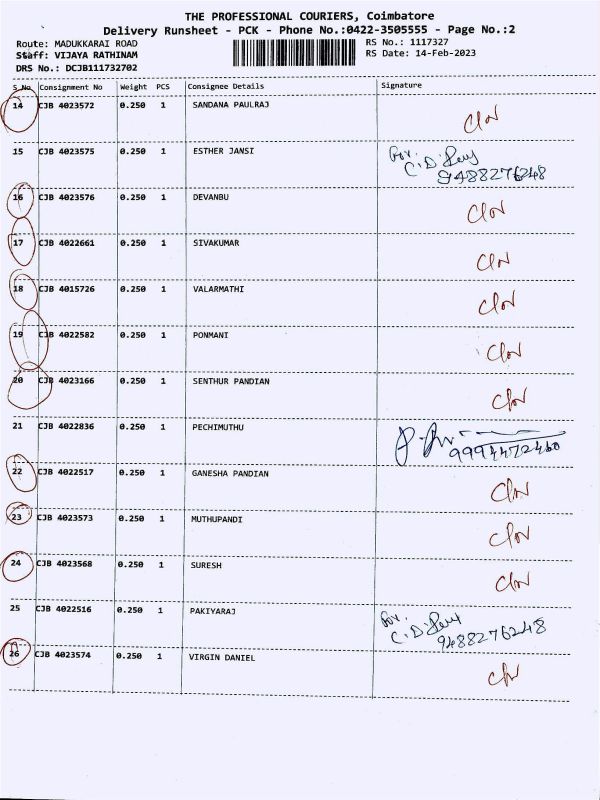 THE PROFESSIONAL COURIERS, Coimbatore
Delivery Runsheet - PCK - Phone No.:0422-3505555 - Page No.:2
Route: MADUKKARAI ROAD RS No.: 1117327
Staff: VIJAYA RATHINAM RS Date: 14-Feb-2023
DRS No.: DCJB111732702
S No Consignment No Weight PCS Consignee Details Signature
14 CJB 4023572 0.250 1 SANDANA PAULRAJ
15 CJB 4023575 0.250 1 ESTHER JANSI for.
9488276248
16 CJB 4023576 0.250 1 DEVANBU
17 CJB 4022661 0.250 1 SIVAKUMAR
18 CJB 4015726 0.250 1 VALARMATHI
19 CJB 4022582 0.250 1 PONMANI
20 CJB 4023166 0.250 1 SENTHUR PANDIAN
21 CJB 4022836 0.250 1 PECHIMUTHU
9994472460
22 CJB 4022517 0.250 1 GANESHA PANDIAN
23 CJB 4023573 0.250 1 MUTHUPANDI
24 CJB 4023568 0.250 1 SURESH
25 CJB 4022516 0.250 1 PAKIYARAJ for.
9488276248
26 CJB 4023574 0.250 1 VIRGIN DANIEL